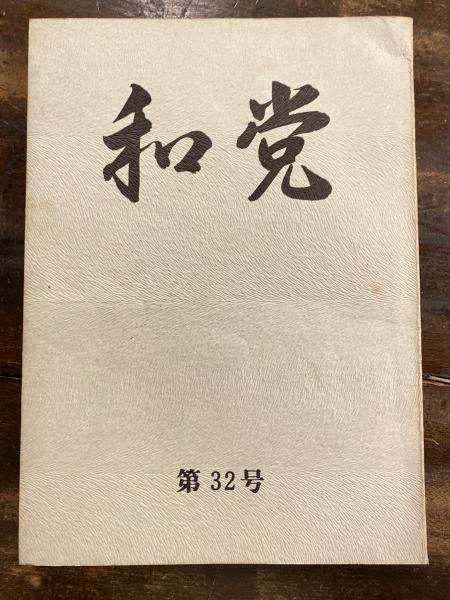 和党
第32号